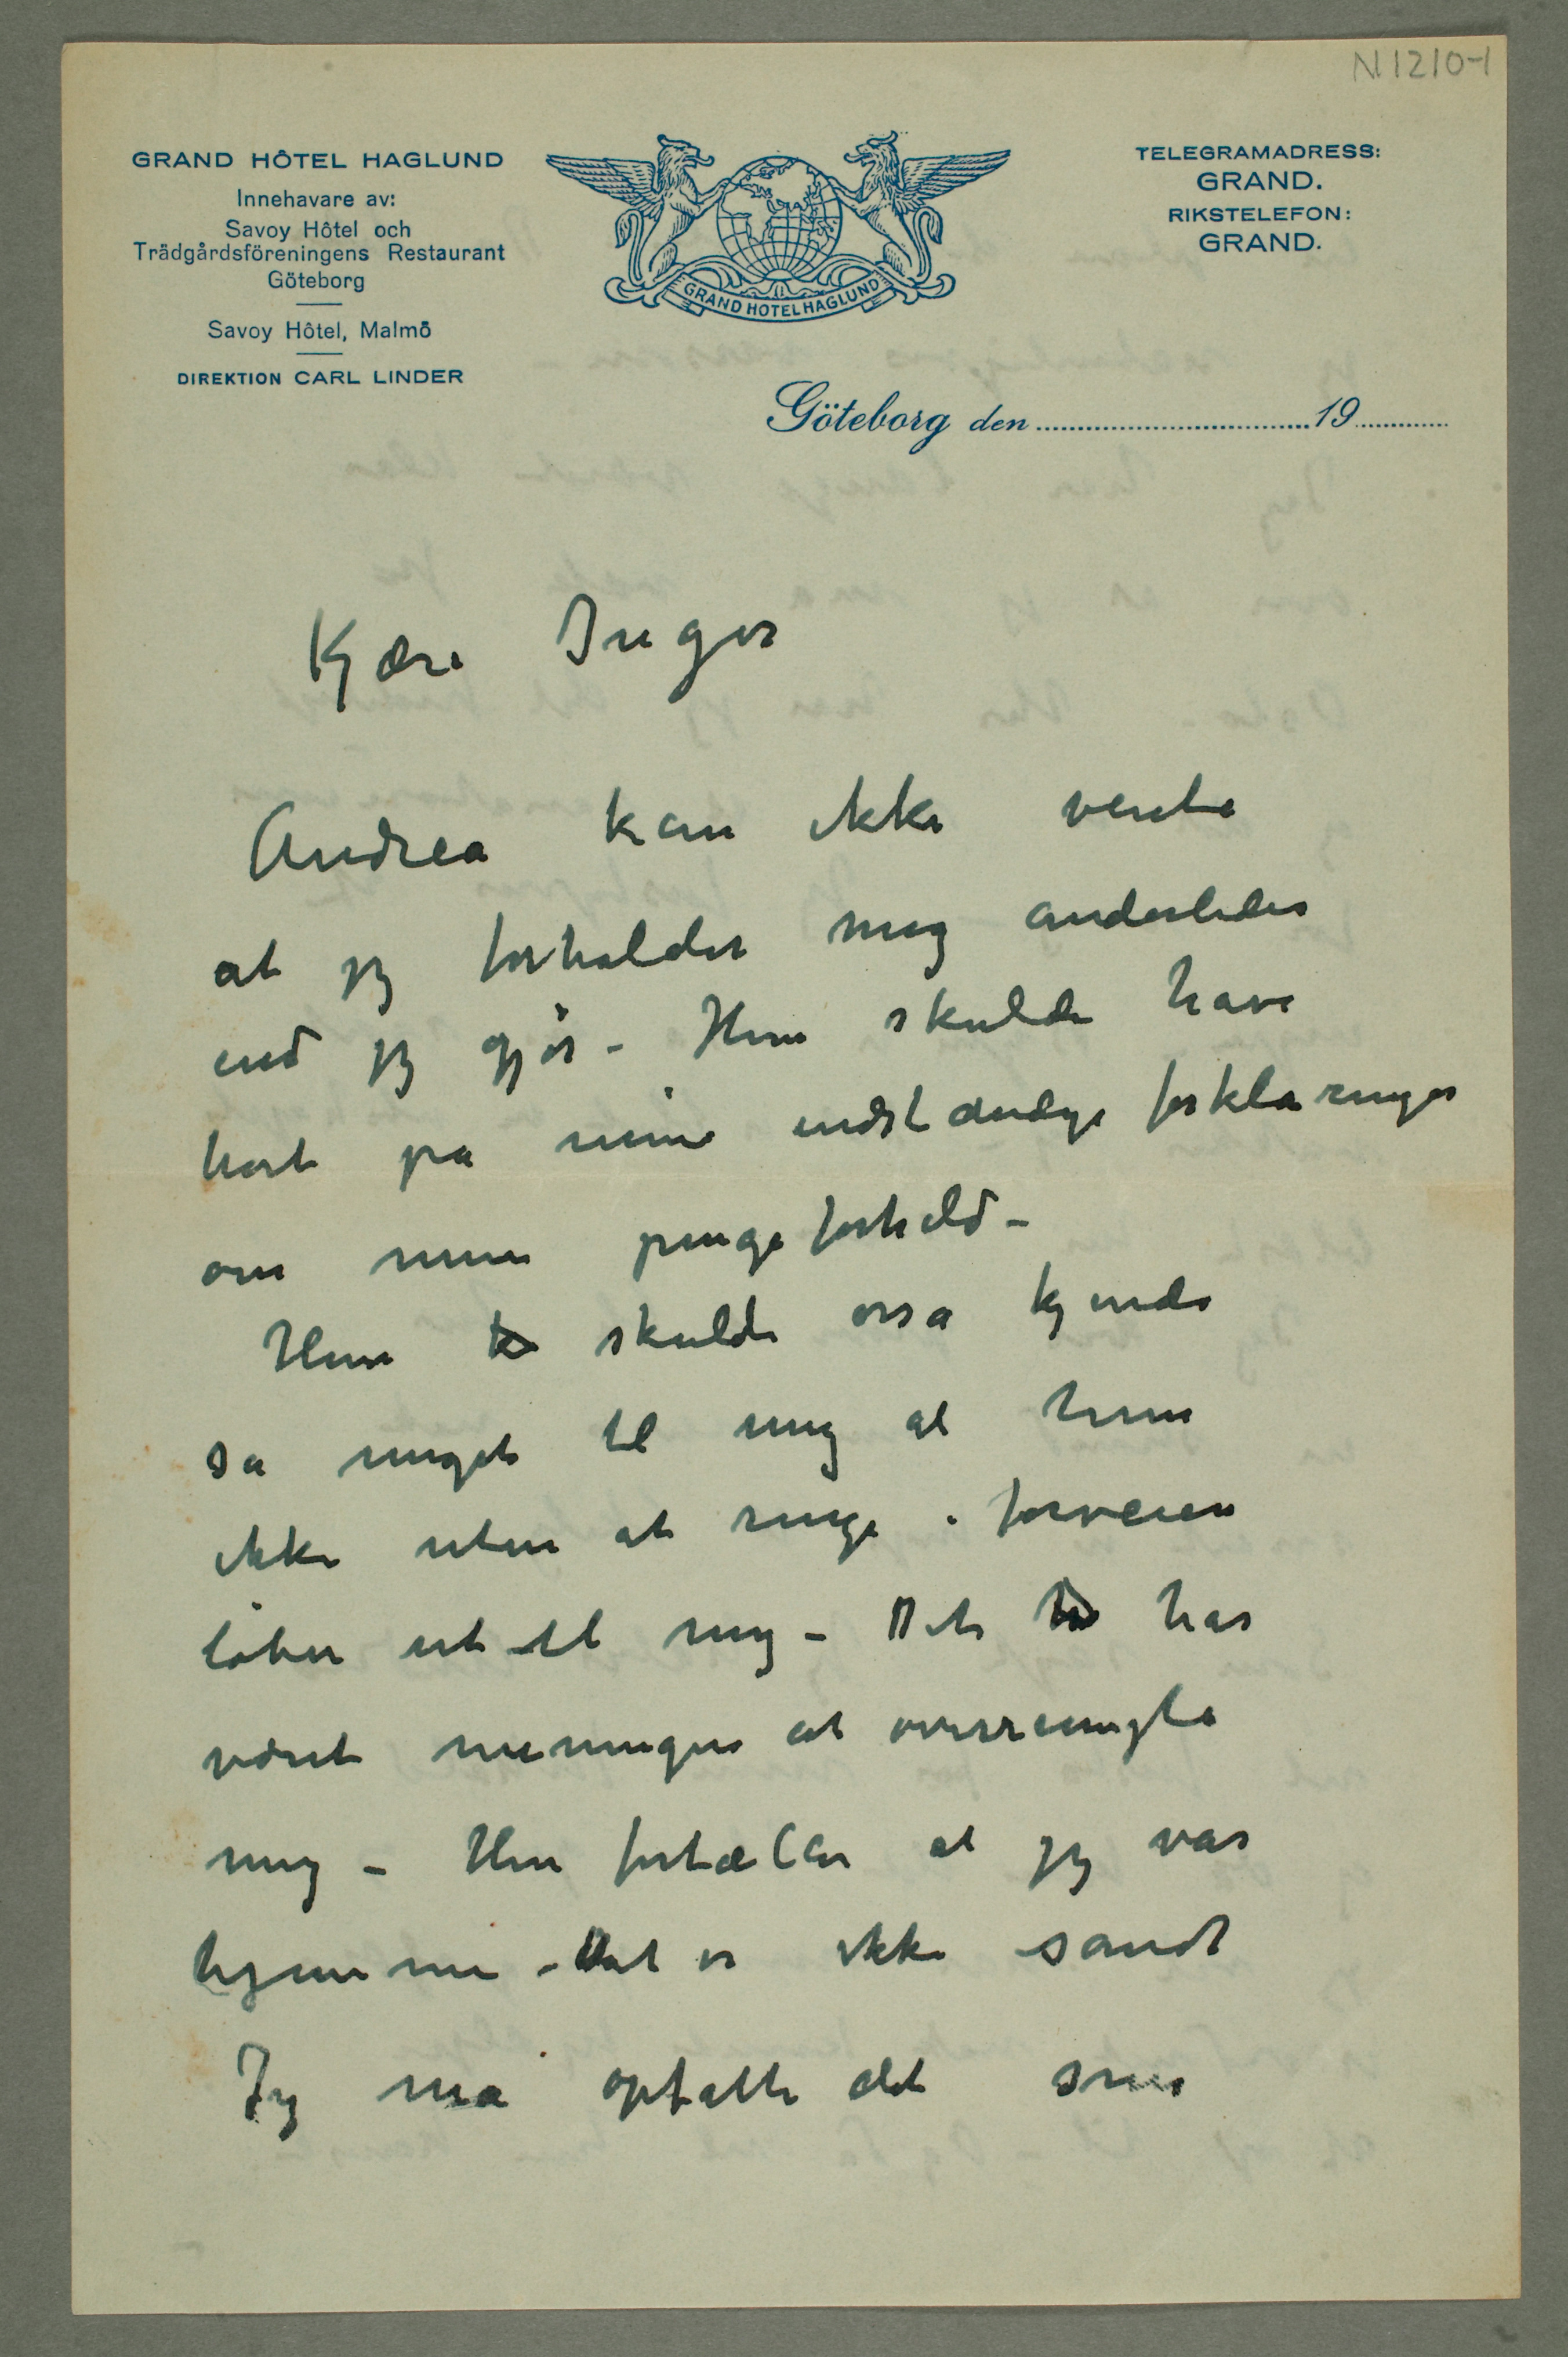 N 1210-1
GRAND HÔTEL HAGLUND
Innehavare av:
Savoy Hôtel och
Trädgårdsföreningens Restaurant
Göteborg
Savoy Hôtel, Malmö
DIREKTION CARL LINDER
GRAND HOTEL HAGLUND
TELEGRAMADRESS:
GRAND.
RIKSTELEFON:
GRAND.
Göteborg den 19
Kjære Inger
Andrea kan ikke vente
at jeg forholder mig anderledes
end jeg gjör – Hun skulde have
hørt pa mine indstændige forklaringer
om mine pengeforhold –
Hun skulde ossa kjende
sa meget til mig at hun
ikke uten at ringe i forveien
løber ut til mig – Det har
været meningen at overrumple
mig – Hun fortæller at jeg var
hjemme – Det er ikke sandt
Jeg må opfatte det som